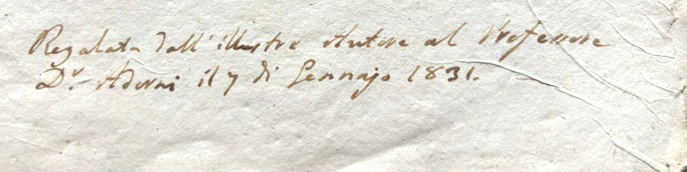 Regalata dall'illustre Autore al Professore
Dr. Adorni il 7 di Gennajo 1831.